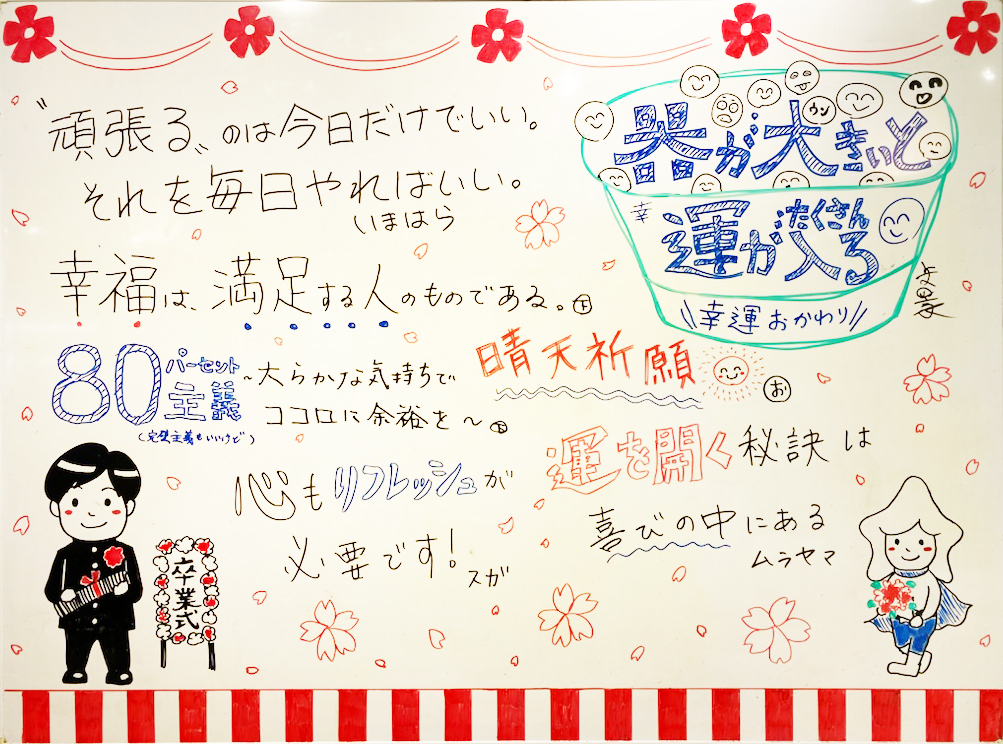 "頑張る"のは今日だけでいい。
それを毎日やればいい。
いまはら
器が大きいと
ウン
幸
運がたくさん入る
\\幸運おかわり//
幸福は、満足する人のものである。
80パーセント主義
(完璧主義もいいけど)
~大らかな気持ちで
ココロに余裕を~
晴天祈願
お
心もリフレッシュが
必要です!
スガ
運を開く秘訣は
喜びの中にある
ムラヤマ
卒業式